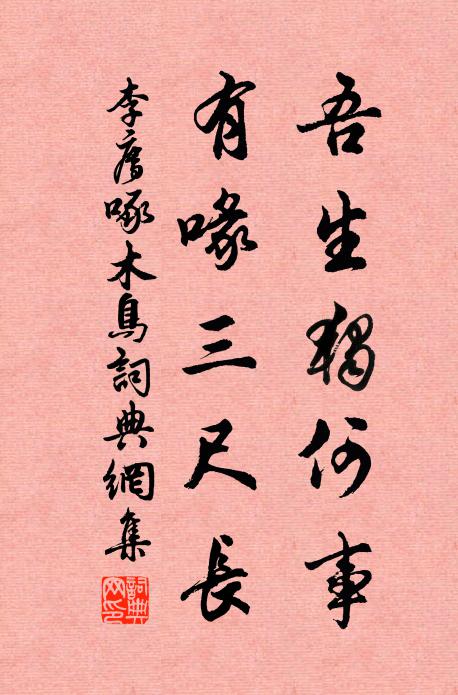 吾生獨何事
有喙三尺長
李廌啄木鳥詞典網集
詞典
网印